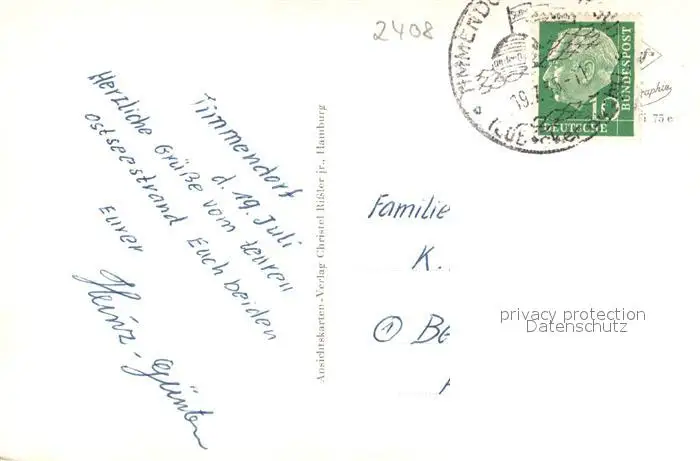 2408
Timmendorf
d. 19. Juli
Herzliche Grüße vom teuren
Ostseestrand Euch beiden
Eurer
Heinz-Günter
Ansichtskarten-Verlag Christel Rißler jr., Hamburg
TIMMENDO
19.7.
(LÜBECKER
10
DEUTSCHE
BUNDESPOST
75 e
Familie
K.
① Be
privacy protection
Datenschutz